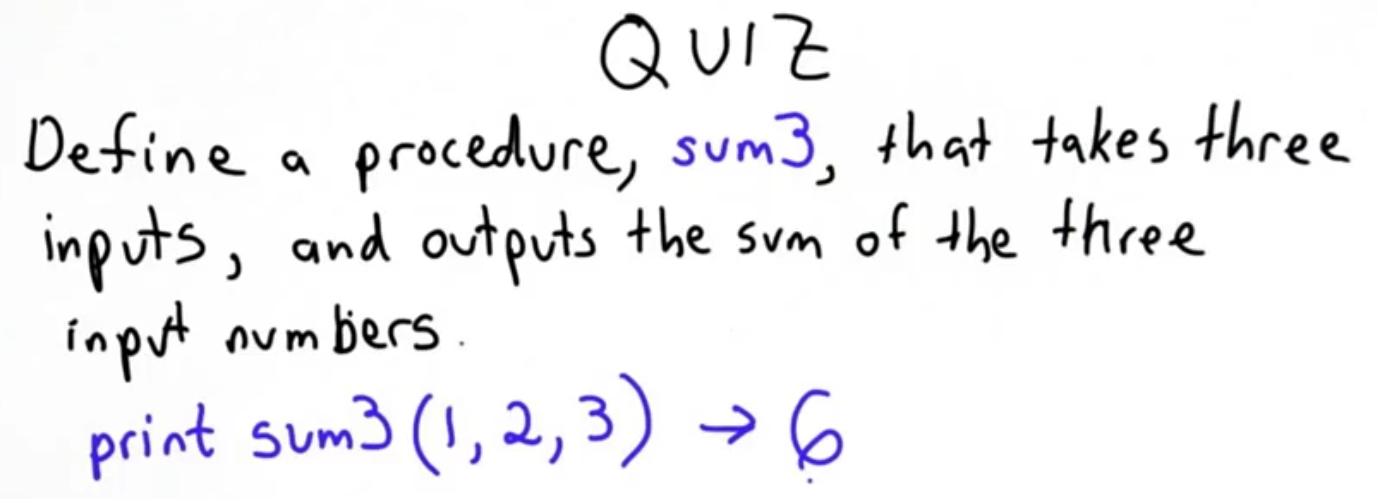 QUIZ
Define a procedure, sum3, that takes three
inputs, and outputs the sum of the three
input numbers.
print sum3(1, 2, 3) → 6